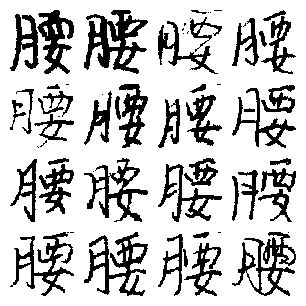 腰腰腰腰
腰腰腰腰
腰腰腰腰
腰腰腰腰